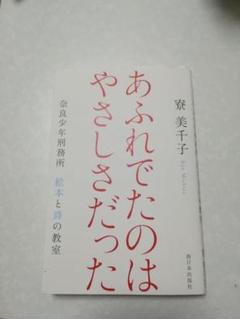 寮 美千子
あふれでたのは
やさしさだった
奈良少年刑務所 絵本と詩の教室
西日本出版社